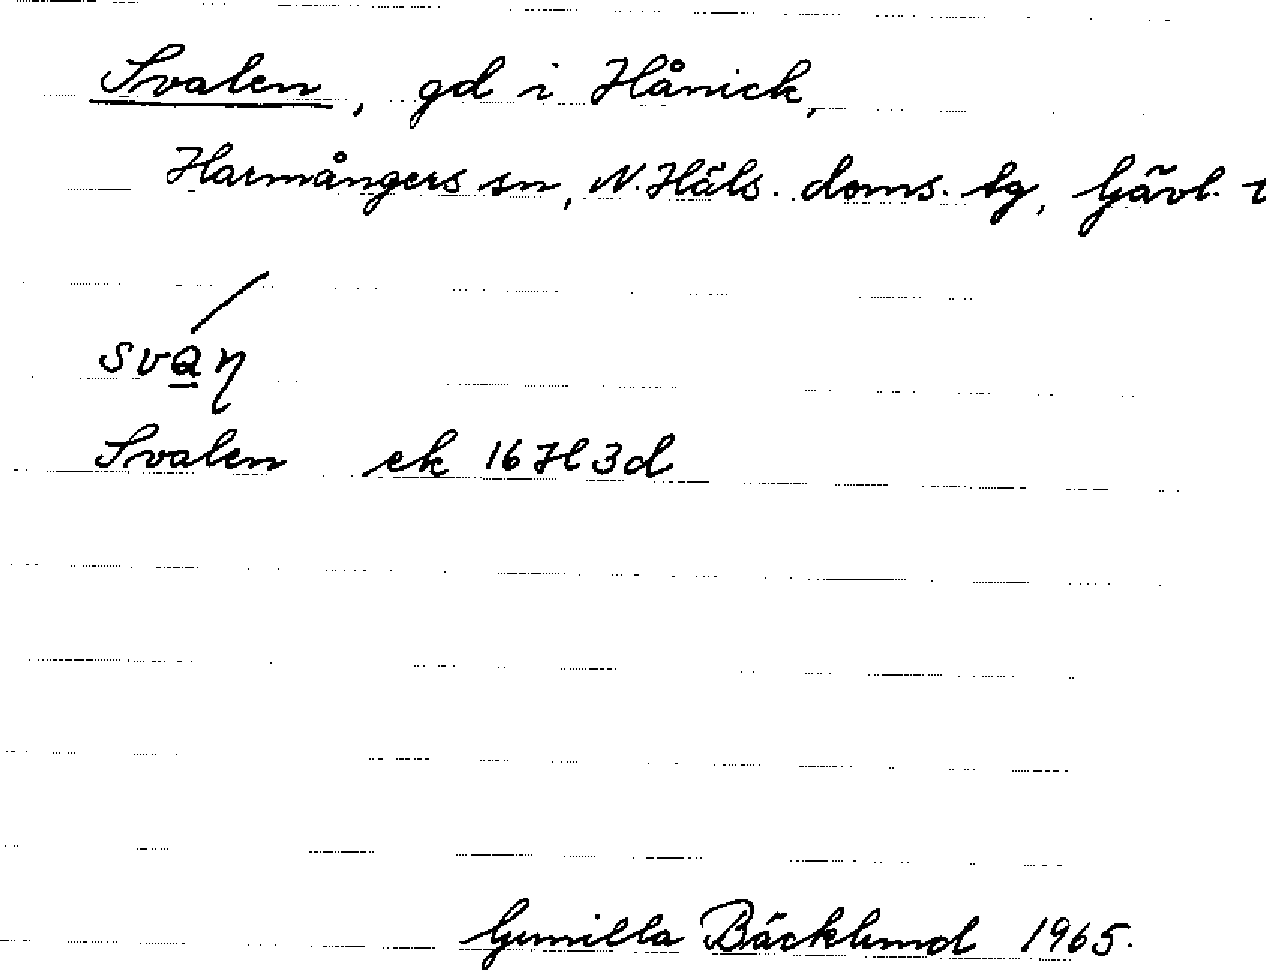 Svalen, gd i Hånick,
Harmångers sn, N. Häls. doms. tg, Gävl.
svan
Svalen ek 16H3d
Gunilla Bäcklund 1965.